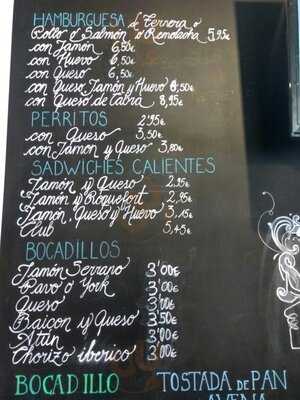 HAMBURGUESA de Ternera o
Pollo o Salmón o Remolacha 5,95€
con Jamón 6,50€
con Huevo 6,50€
con Queso 6,50€
con Queso Jamón y Huevo 6,50€
con Queso de Cabra 8,95€
PERRITOS 2'95€
con Queso 3,50€
con Jamon y Queso 3,80€
SADWICHES CALIENTES
Jamón y Queso 2,95€
Jamón y Roquefort 2,95€
Jamón, Queso y Huevo 3,15€
Club 5,45€
BOCADÍLLOS
Jamón Serrano 3'00€
Pavo o York 3'00€
Queso 3'00€
Baicon y Queso 3'50€
Atún 3'00€
Chorizo iberico 3'00€
BOCADILLO TOSTADA de PAN
AVENA